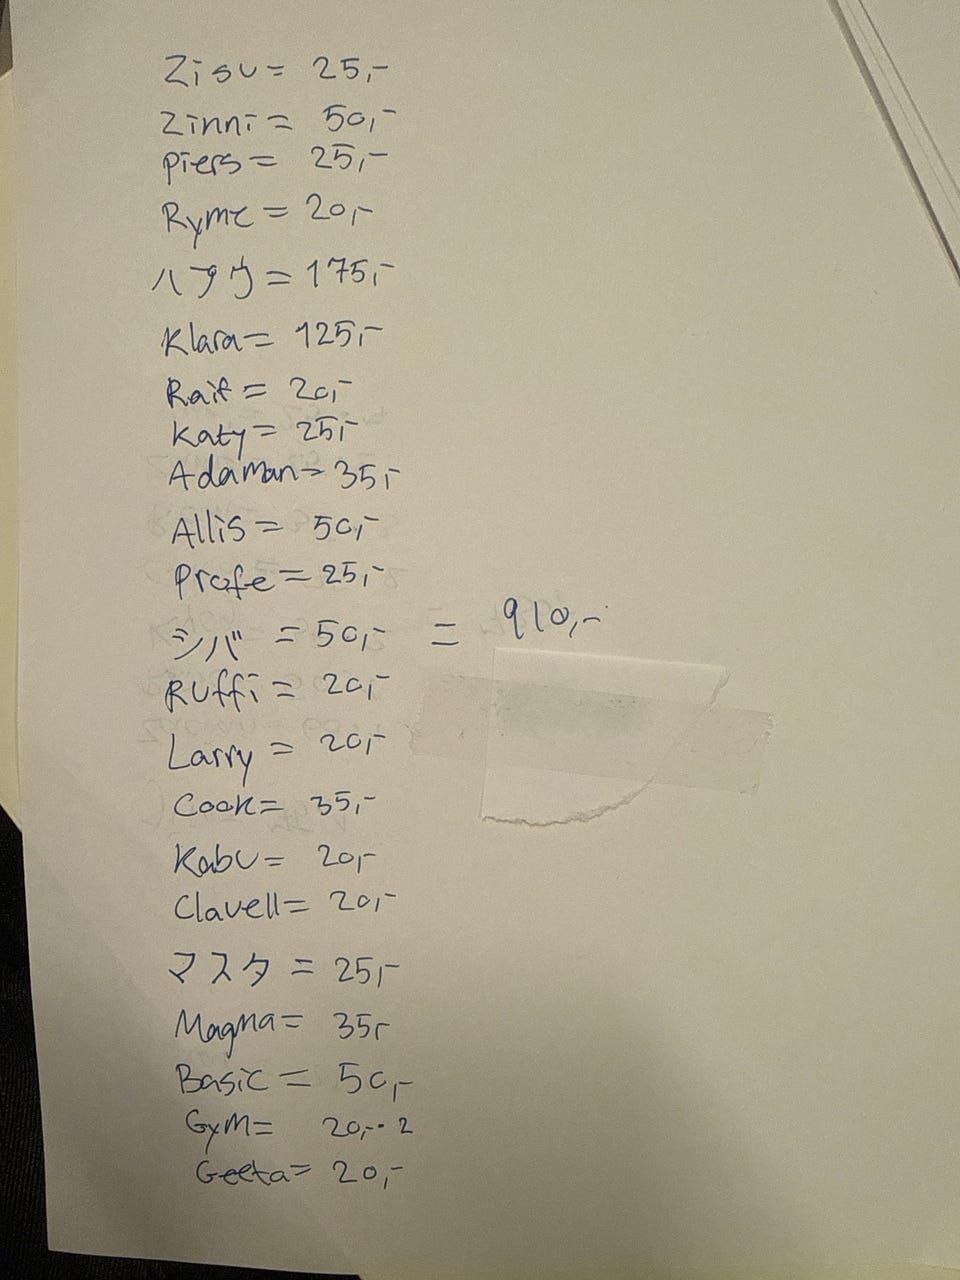 Zisu = 25,-
Zinni = 50,-
Piers = 25,-
Ryme = 20,-
ハプウ = 175,-
Klara = 125,-
Raif = 20,-
Katy = 25,-
Adaman = 35,-
Allis = 50,-
Profe = 25,-
シバ = 50,- = 910,-
Ruffi = 20,-
Larry = 20,-
Cook = 35,-
Kabu = 20,-
Clavell = 20,-
マスタ = 25,-
Magma = 35,-
Basic = 50,-
Gym = 20,- · 2
Geeta = 20,-